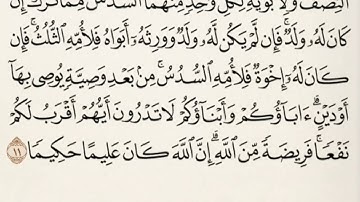 ٱلنِّصۡفُۚ وَلِأَبَوَيۡهِ لِكُلِّ وَٰحِدٖ مِّنۡهُمَا ٱلسُّدُسُ مِمَّا تَرَكَ إِن
كَانَ لَهُۥ وَلَدٞۚ فَإِن لَّمۡ يَكُن لَّهُۥ وَلَدٞ وَوَرِثَهُۥٓ أَبَوَاهُ فَلِأُمِّهِ ٱلثُّلُثُۚ فَإِن
كَانَ لَهُۥٓ إِخۡوَةٞ فَلِأُمِّهِ ٱلسُّدُسُۚ مِنۢ بَعۡدِ وَصِيَّةٖ يُوصِي بِهَآ
أَوۡ دَيۡنٍۗ ءَابَآؤُكُمۡ وَأَبۡنَآؤُكُمۡ لَا تَدۡرُونَ أَيُّهُمۡ أَقۡرَبُ لَكُمۡ
نَفۡعٗاۚ فَرِيضَةٗ مِّنَ ٱللَّهِۗ إِنَّ ٱللَّهَ كَانَ عَلِيمًا حَكِيمٗا ١١